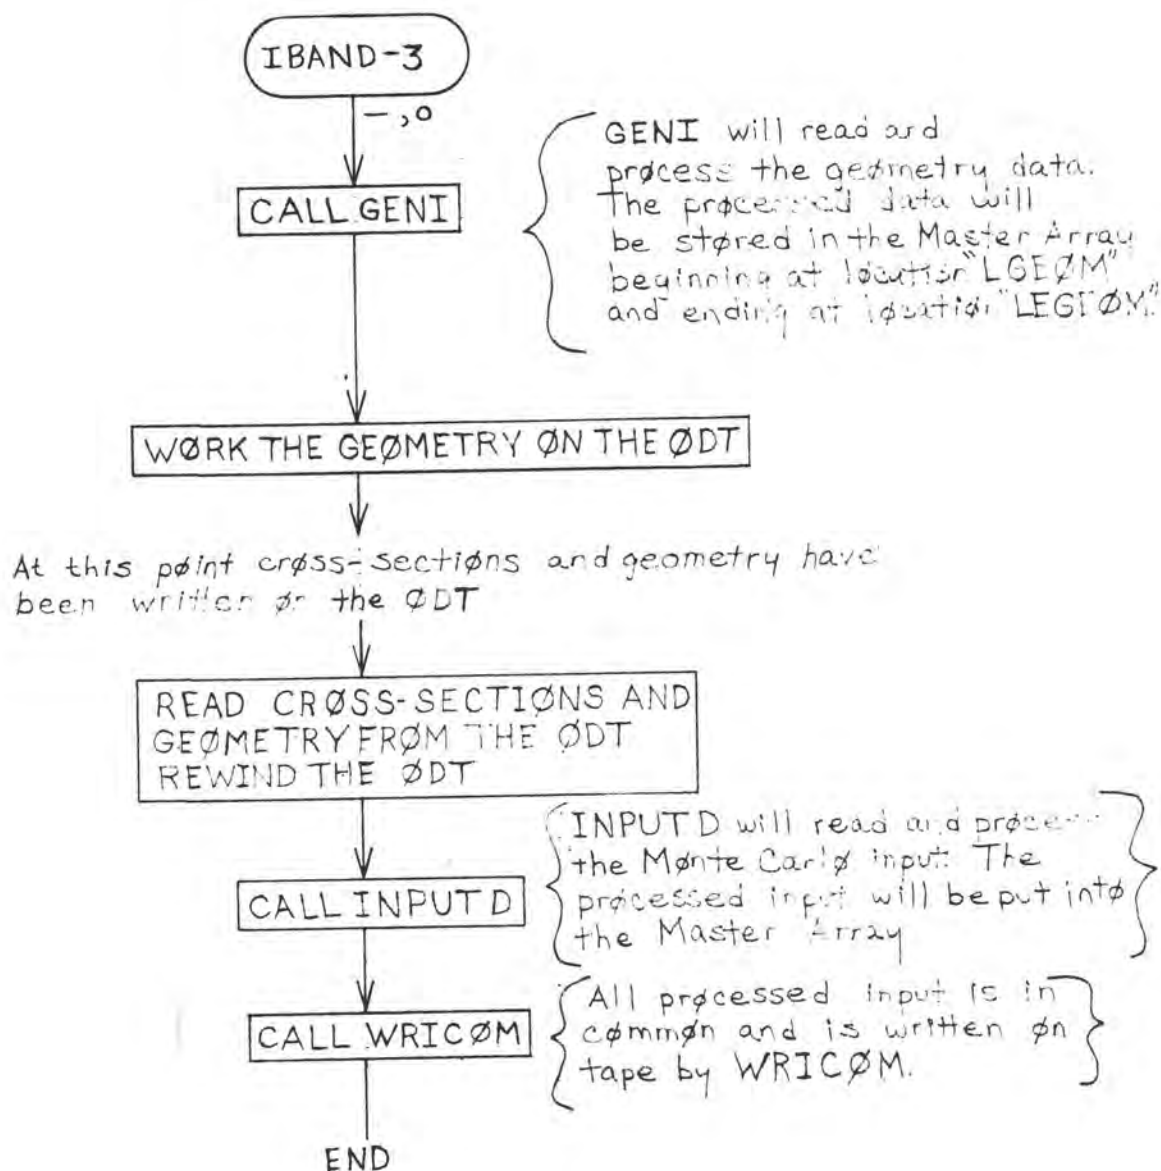 IBAND-3
-,0
CALL GENI
GENI will read and
prøcess the geømetry data.
The prøcessed data will
be støred in the Master Array
beginning at løcatiøn "LGEØM"
and ending at løcatiøn
WØRK THE GEØMETRY ØN THE ØDT
At this pøint crøss-sectiøns and geømetry have
been written øn the ØDT
READ CRØSS-SECTIØNS AND
GEØMETRY FRØM THE ØDT
REWIND THE ØDT
CALL INPUTD
INPUTD will read and prøcess
the Mønte Carlø input. The
prøcessed input will be put intø
the Master Array
CALL WRICØM
All prøcessed input is in
cømmøn and is written øn
tape by WRICØM.
END